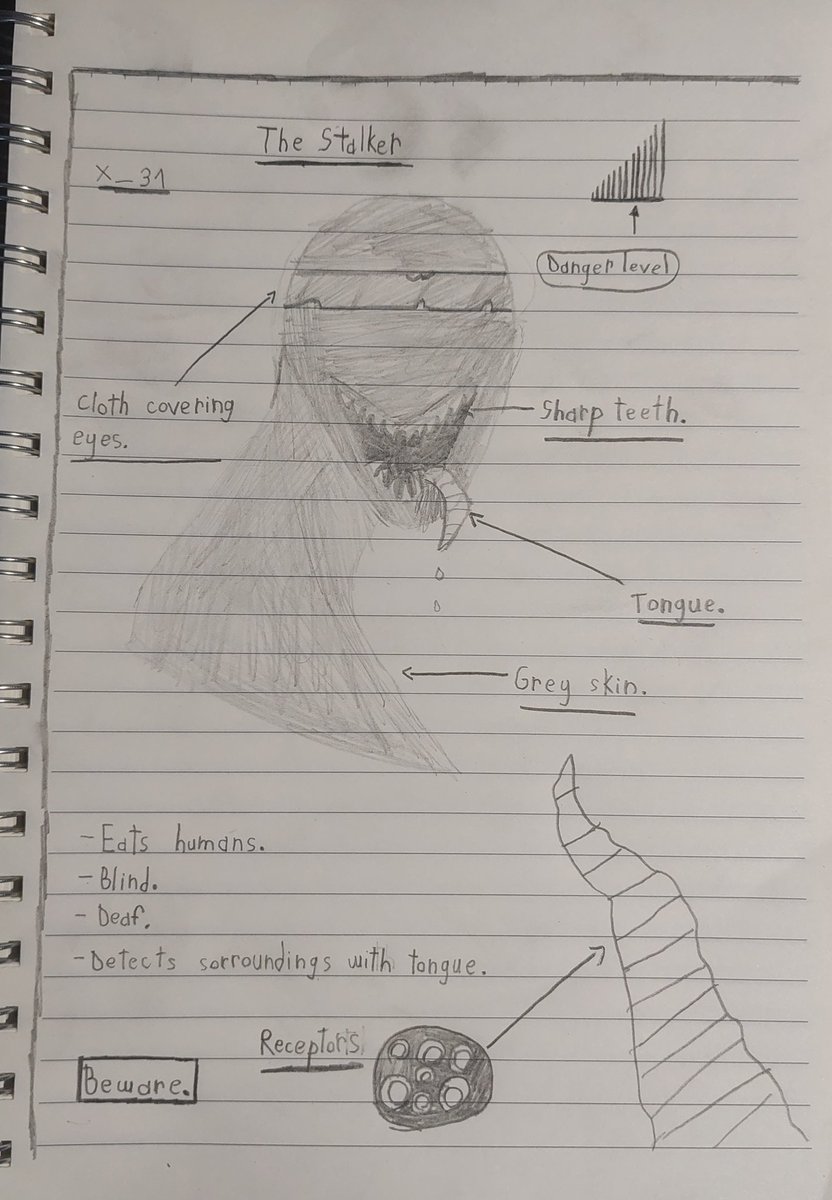 The Stalker
X_31
Danger level
Cloth covering
eyes.
Sharp teeth.
Tongue.
Grey skin.
-Eats humans.
-Blind.
-Deaf.
-Detects sorroundings with tongue.
Receptors
Beware.